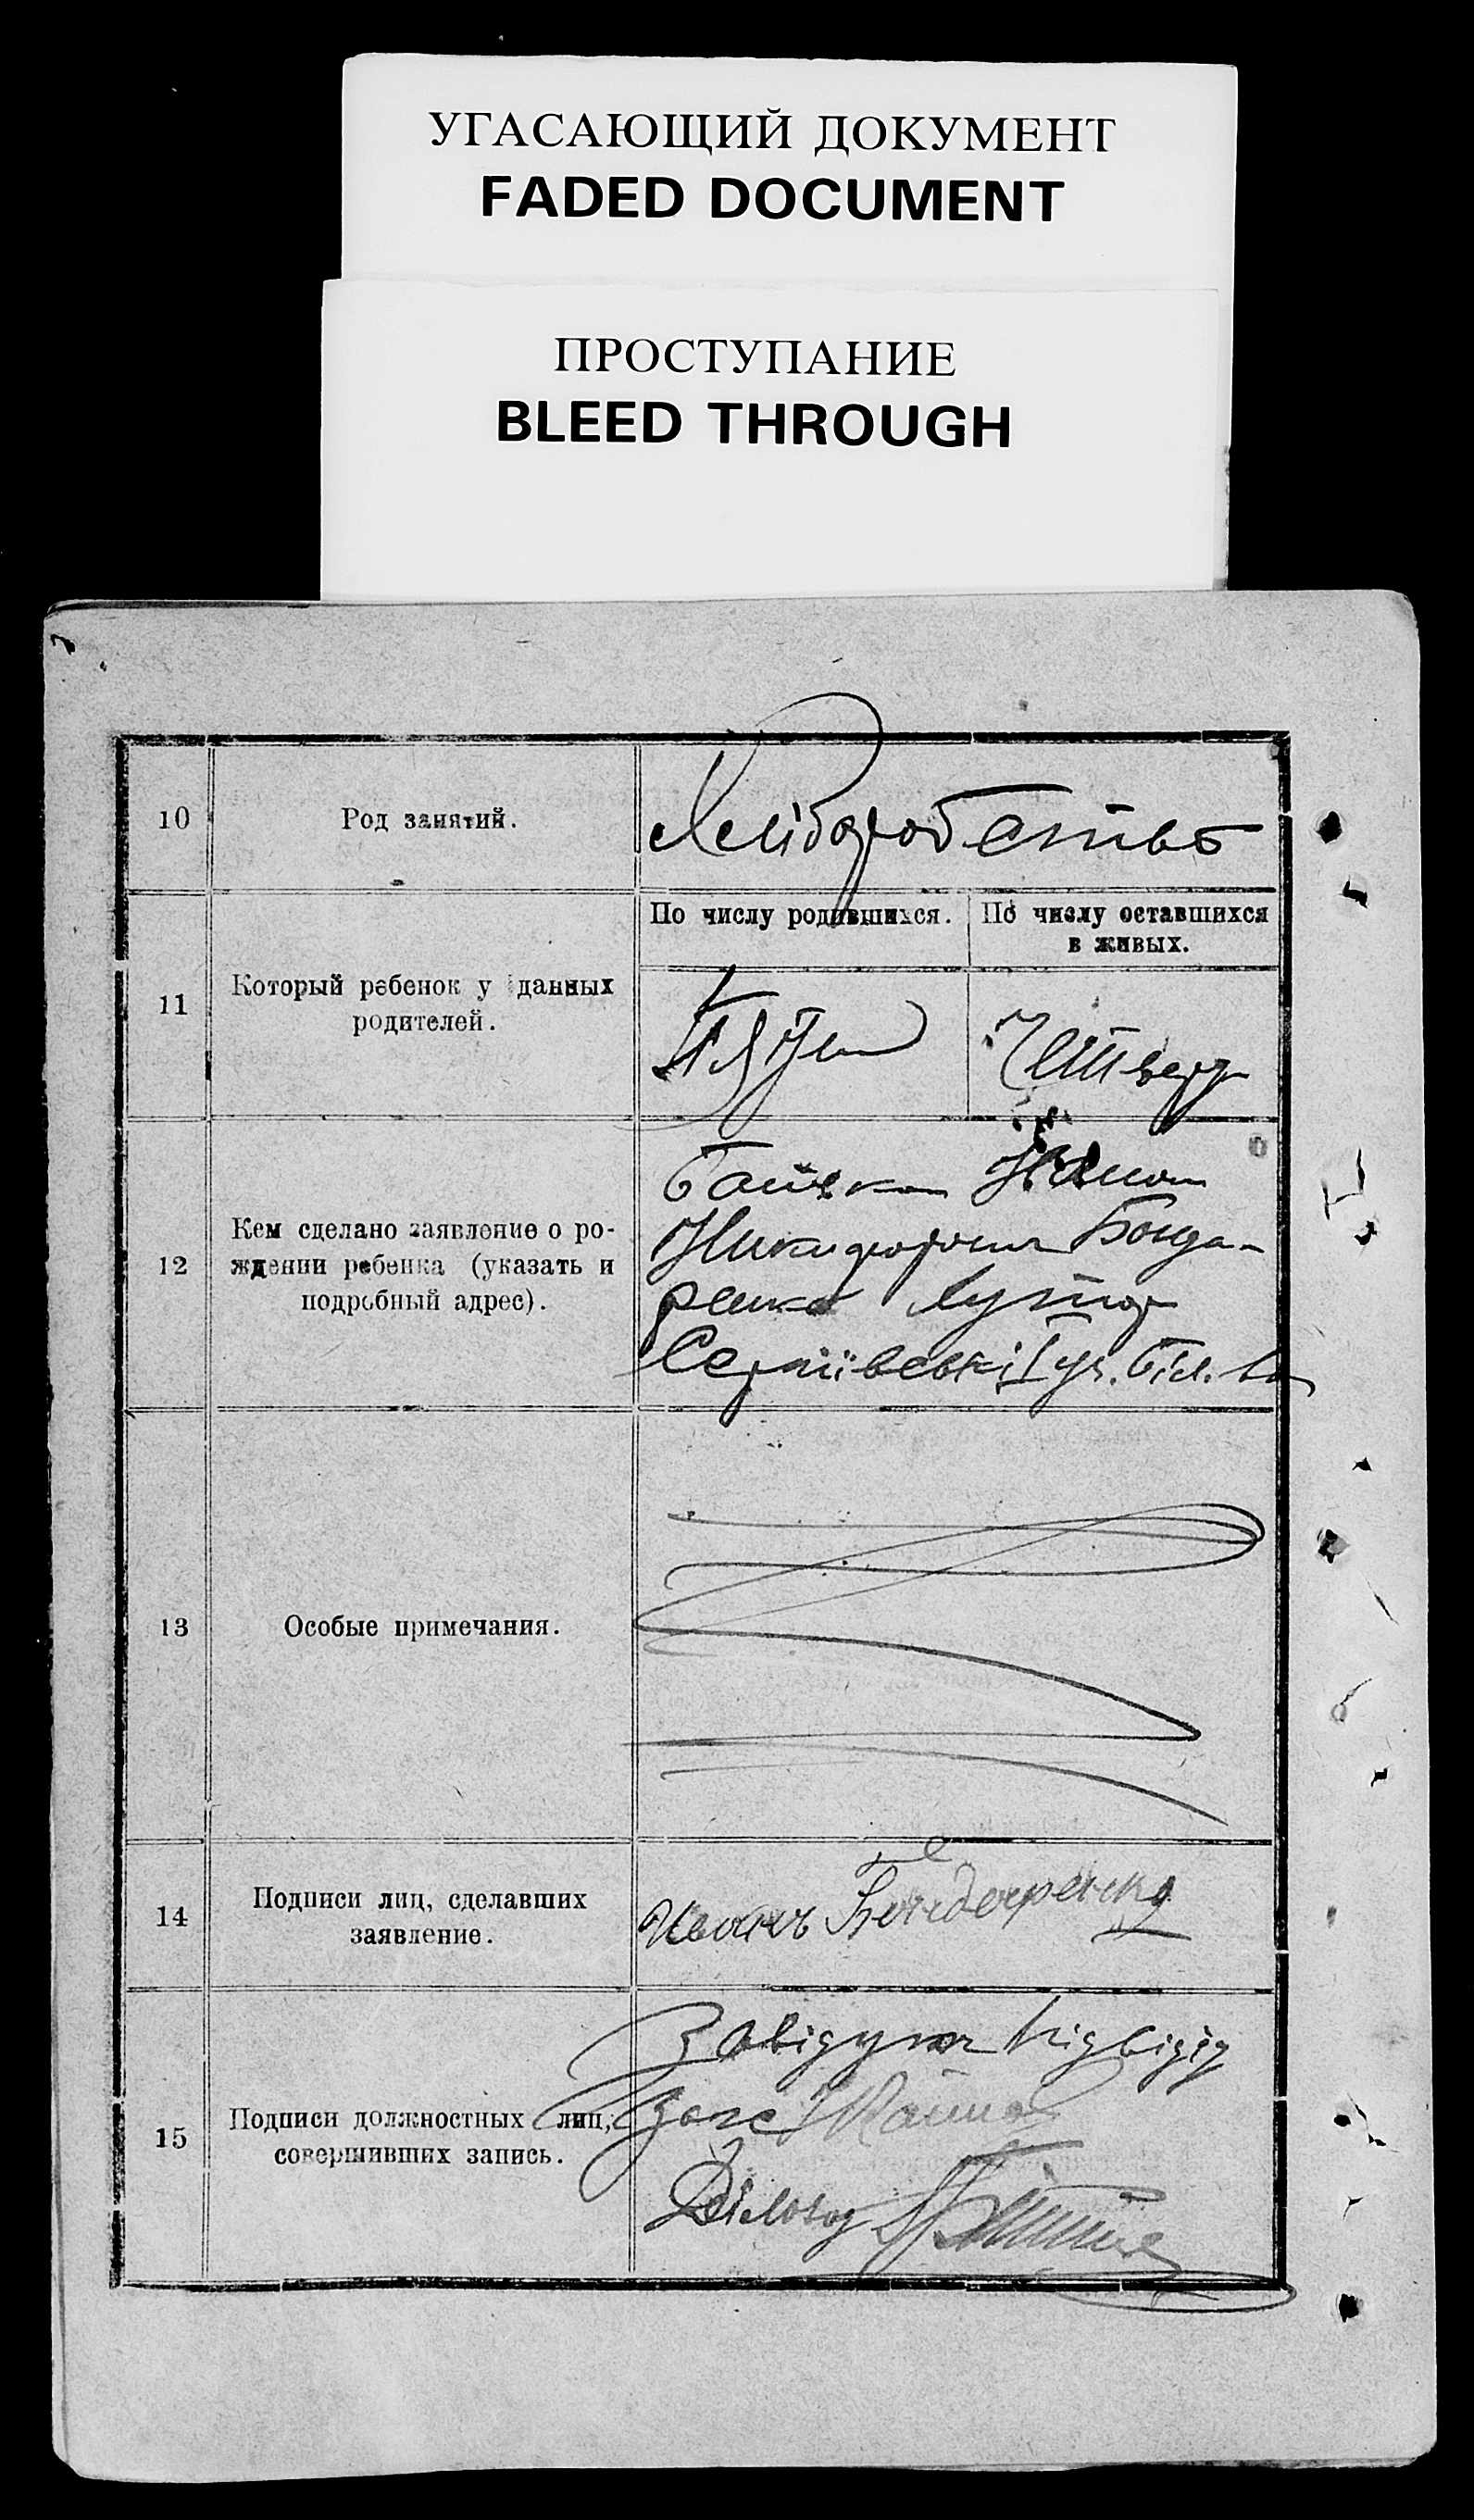 УГАСАЮЩИЙ ДОКУМЕНТ
FADED DOCUMENT
ПРОСТУПАНИЕ
BLEED THROUGH
10
Род занятий.
Хліборобство
11
Который ребенок у данных
родителей.
По числу родившихся.
По числу оставшихся
в живых.
Четвер
12
Кем сделано заявление о ро-
ждении ребенка (указать и
подробный адрес).
Батьком Іваном
Никифорович Бонда-
ренко Хутор
Сергіївськ
13
Особые примечания.
14
Подписи лиц, сделавших
заявление.
Иванъ Бондаренко
15
Подписи должностных лиц,
совершивших запись.
Завідуюч підвідділ
Діловод